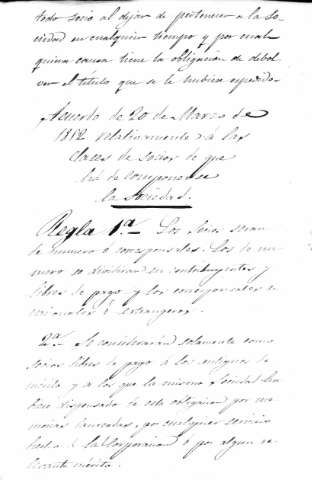 todo socio al dejar de pertenecer a la so-
ciedad en cualquier tiempo y por cual-
quiera causa tiene la obligacion de debol-
ver el titulo que se le hubiera espedido.
Acuerdo de 20 de Marzo de
1812 relativamente á las
clases de socios de que
há de componerse
la Sociedad.
Regla 1.ª Los Socios seran
de numero ó corresponsales. Los de nu-
mero se dividiran en contribuyentes y
libres de pago y los corresponsales en
nacionales ó estrangeros.
2.ª Se considerarán solamente como
socios libres de pago á los antiguos de
mérito y á los que la misma Sociedad hu-
biere dispensado de esta obligacion por me-
morias laureadas, por cualquier servicio
hecho á la Corporacion ó por algun re-
levante mérito.